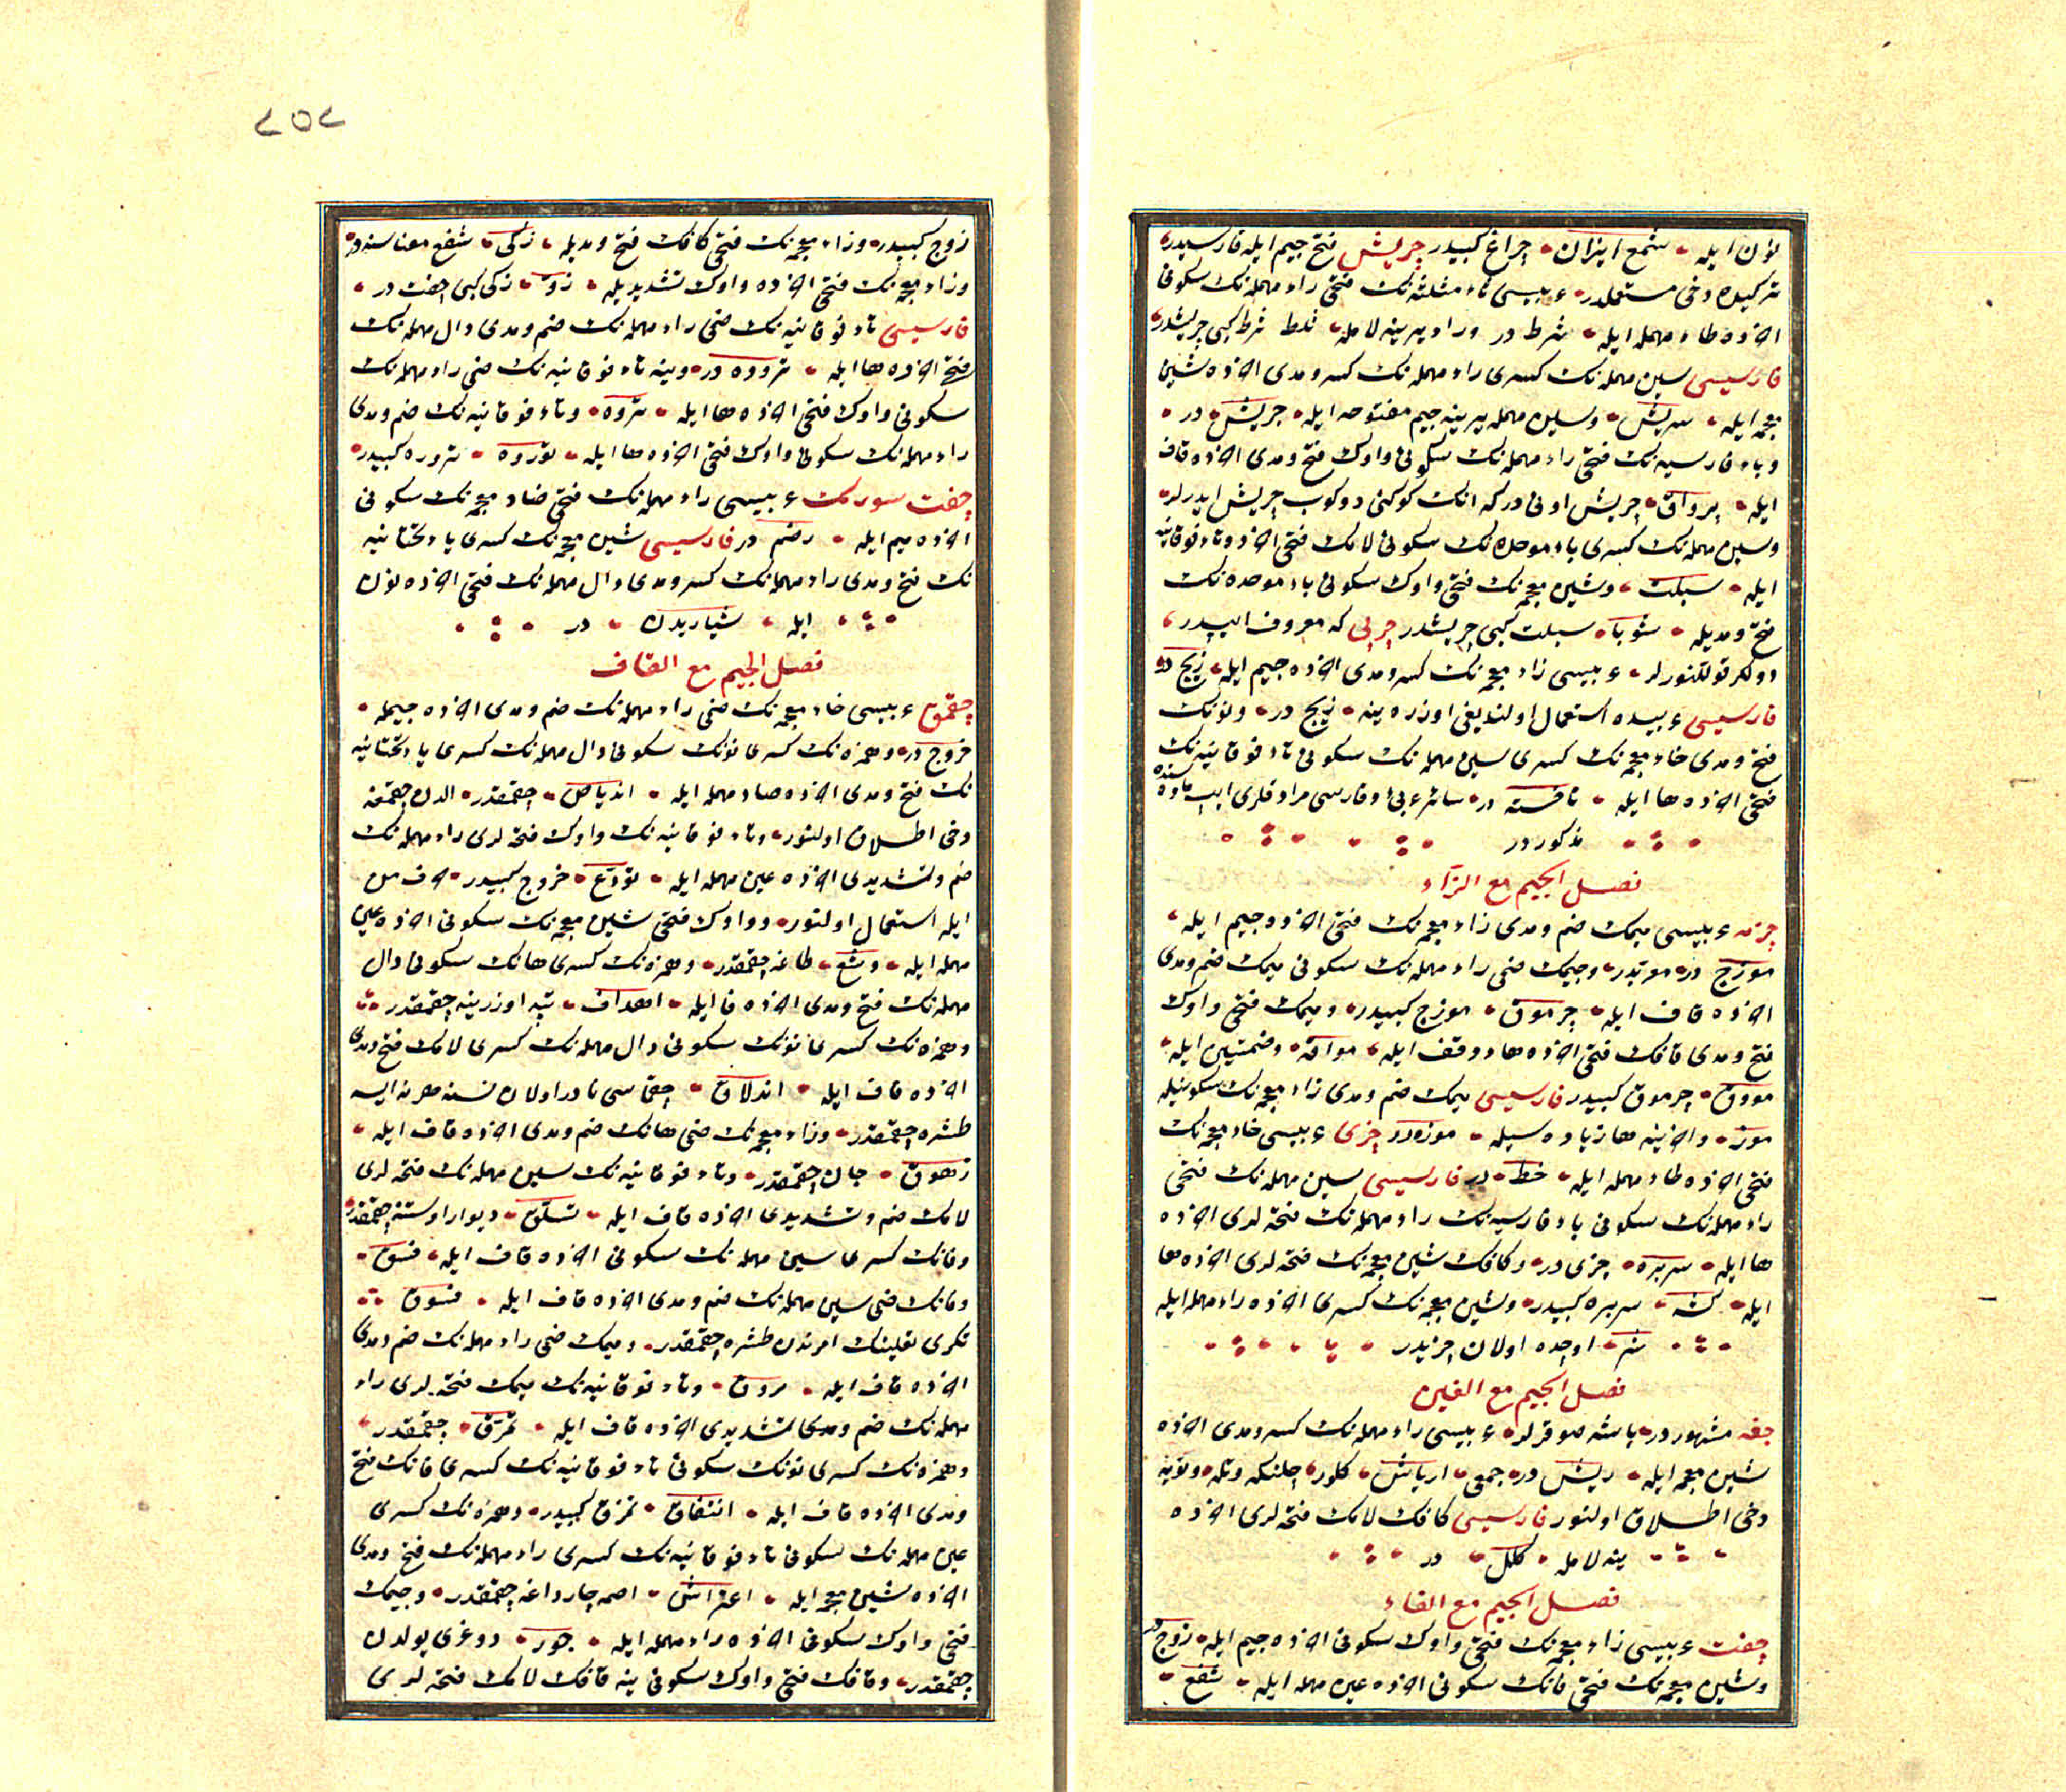 نون ايله شمع ايزان چراغ كبيدر چريش فتح جيم ايله فارسيدر
تركيده دخى مستعملدر عربيسى ثاء مثلثه نك فتحى راء مهمله نك سكونى
اخرده طاء مهمله ايله ثرط در وراء يرينه لامله ثلط ثرط كبى چريشدر
فارسيسى سين مهمله نك كسرى راء مهمله نك كسر ومدى اخرده شين
معجمه ايله سريش وسين مهمله يرينه جيم مفتوحه ايله جريش در
وباء فارسيه نك فتحى راء مهمله نك سكونى واوك فتح ومدى اخرده قاف
ايله پرواق چريش اوتى دركه انك كوكنى دوكوب چريش ايدرلر
وسين مهمله نك كسرى باء موحده نك سكونى لامك فتحى اخرده تاء فوقانيه
ايله سبلت وشين معجمه نك فتحى واوك سكونى باء موحده نك
فتح ومديله شوبا سبلت كبى چريشدر چرپى كه معروف ايپدر
دولكر قوللنورلر عربيسى زاء معجمه نك كسر ومدى اخرده جيم ايله زيج در
فارسيسى عربيده استعمال اولنديغى اوزره ينه زيج در ونونك
فتح ومدى خاء معجمه نك كسرى سين مهمله نك سكونى تاء فوقانيه نك
فتحى اخرده ها ايله ناخسته در سائر عربى وفارسى مرادفلرى ايپ ماده سنده
مذكوردر
فصل الجيم مع الزاء
چزمه عربيسى ميمك ضم ومدى زاء معجمه نك فتحى اخرده جيم ايله
موزج در معربدر وجيمك ضمى راء مهمله نك سكونى ميمك ضم ومدى
اخرده قاف ايله جرموق موزج كبيدر وميمك فتحى واوك
فتح ومدى قافك فتحى اخرده هاء وقف ايله مواقه وضمتين ايله
مووق جرموق كبيدر فارسيسى ميمك ضم ومدى زاء معجمه نك سكونيله
موز واخرينه ها زياده سيله موزه در چزى عربيسى خاء معجمه نك
فتحى اخرده طاء مهمله ايله خط در فارسيسى سين مهمله نك فتحى
راء مهمله نك سكونى باء فارسيه نك راء مهمله نك فتحه لرى اخرده
ها ايله سرپره چزى در وكافك شين معجمه نك فتحه لرى اخرده ها
ايله كشه سرپره كبيدر وشين معجمه نك كسرى اخرده راء مهمله ايله
شر اوجده اولان چزيدر
فصل الجيم مع الغين
جغه مشهوردر باشه صوقرلر عربيسى راء مهمله نك كسر ومدى اخرده
شين معجمه ايله ريش در جمعى ارياش كلور چلنكه وتله وتويه
دخى اطلاق اولنور فارسيسى كافك لامك فتحه لرى اخرده
ينه لامله كلل در
فصل الجيم مع الفاء
چفت عربيسى زاء معجمه نك فتحى واوك سكونى اخرده جيم ايله زوج در
وشين معجمه نك فتحى فانك سكونى اخرده عين مهمله ايله شفع
٢٥٢
زوج كبيدر وزاء معجمه نك فتحى كافك فتح ومديله زكى شفع معناسنه در
وزاء معجمه نك فتحى اخرده واوك تشديديله زوّ زكى كبى چفت در
فارسيسى تاء فوقانيه نك ضمى راء مهمله نك ضم ومدى دال مهمله نك
فتحى اخرده ها ايله تروده در وينه تاء فوقانيه نك ضمى راء مهمله نك
سكونى واوك فتحى اخرده ها ايله تروه وتاء فوقانيه نك ضم ومدى
راء مهمله نك سكونى واوك فتحى اخرده ها ايله توروه تروره كبيدر
چفت سورمك عربيسى راء مهمله نك فتحى ضاد معجمه نك سكونى
اخرده ميم ايله رضم در فارسيسى شين معجمه نك كسرى ياء تحتانيه
نك فتح ومدى راء مهمله نك كسر ومدى دال مهمله نك فتحى اخرده نون
ايله شياريدن در
فصل الجيم مع القاف
چقمق عربيسى خاء معجمه نك ضمى راء مهمله نك ضم ومدى اخرده جيمله
خروج در وهمزه نك كسرى نونك سكونى دال مهمله نك كسرى ياء تحتانيه
نك فتح ومدى اخرده صاد مهمله ايله اندياص چقمقدر الدن چقمغه
دخى اطلاق اولنور وتاء فوقانيه نك واوك فتحه لرى راء مهمله نك
ضم وتشديدى اخرده عين مهمله ايله تورّع خروج كبيدر حرف من
ايله استعمال اولنور وواوك فتحى شين معجمه نك سكونى اخرده عين
مهمله ايله وشع طاغه چقمقدر وهمزه نك كسرى هانك سكونى دال
مهمله نك فتح ومدى اخرده فا ايله اهداف تپه اوزرينه چقمقدر
وهمزه نك كسرى نونك سكونى دال مهمله نك كسرى لامك فتح ومدى
اخرده قاف ايله اندلاق چقماسى نادر اولان نسنه هر نه ايسه
طشره چقمقدر وزاء معجمه نك ضمى هانك ضم ومدى اخرده قاف ايله
زهوق جان چقمقدر وتاء فوقانيه نك سين مهمله نك فتحه لرى
لامك ضم وتشديدى اخرده قاف ايله تسلّق ديوار اوستنه چقمقدر
وفانك كسرى سين مهمله نك سكونى اخرده قاف ايله فسق
وفانك ضمى سين مهمله نك ضم ومدى اخرده قاف ايله فسوق
تكرى تعالينك امرندن طشره چقمقدر وميمك ضمى راء مهمله نك ضم ومدى
اخرده قاف ايله مروق وتاء فوقانيه نك ميمك فتحه لرى راء
مهمله نك ضم ومدى تشديدى اخرده قاف ايله تمرّق چقمقدر
وهمزه نك كسرى نونك سكونى تاء فوقانيه نك كسرى فانك فتح
ومدى اخرده قاف ايله انتفاق تمرق كبيدر وهمزه نك كسرى
عين مهمله نك سكونى تاء فوقانيه نك كسرى راء مهمله نك فتح ومدى
اخرده شين معجمه ايله اعتراش اصمه چارداغه چقمقدر وجيمك
فتحى واوك سكونى اخرده راء مهمله ايله جور دوغرى يولدن
چقمقدر وقافك فتحى واوك سكونى ينه قافك لامك فتحه لرى